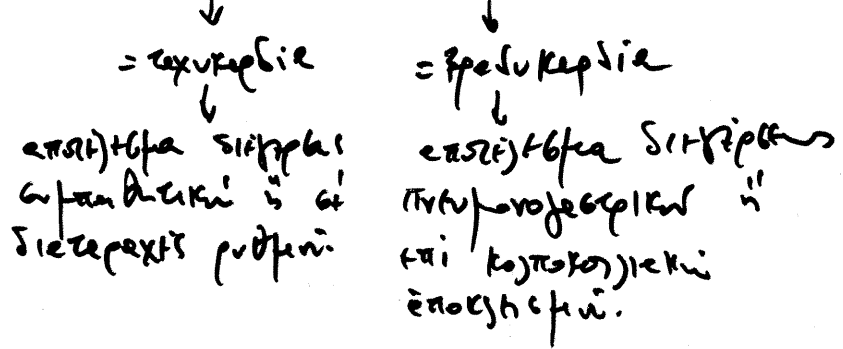 = ταχυκαρδία
αποτέλεσμα διέγερσης
συμπαθητικού ή σέ
διαταραχές ρυθμού.
= βραδυκαρδία
αποτέλεσμα διεγέρσεως
πνευμονογαστρικού ή
επί κολποκοιλιακού
αποκλεισμού.